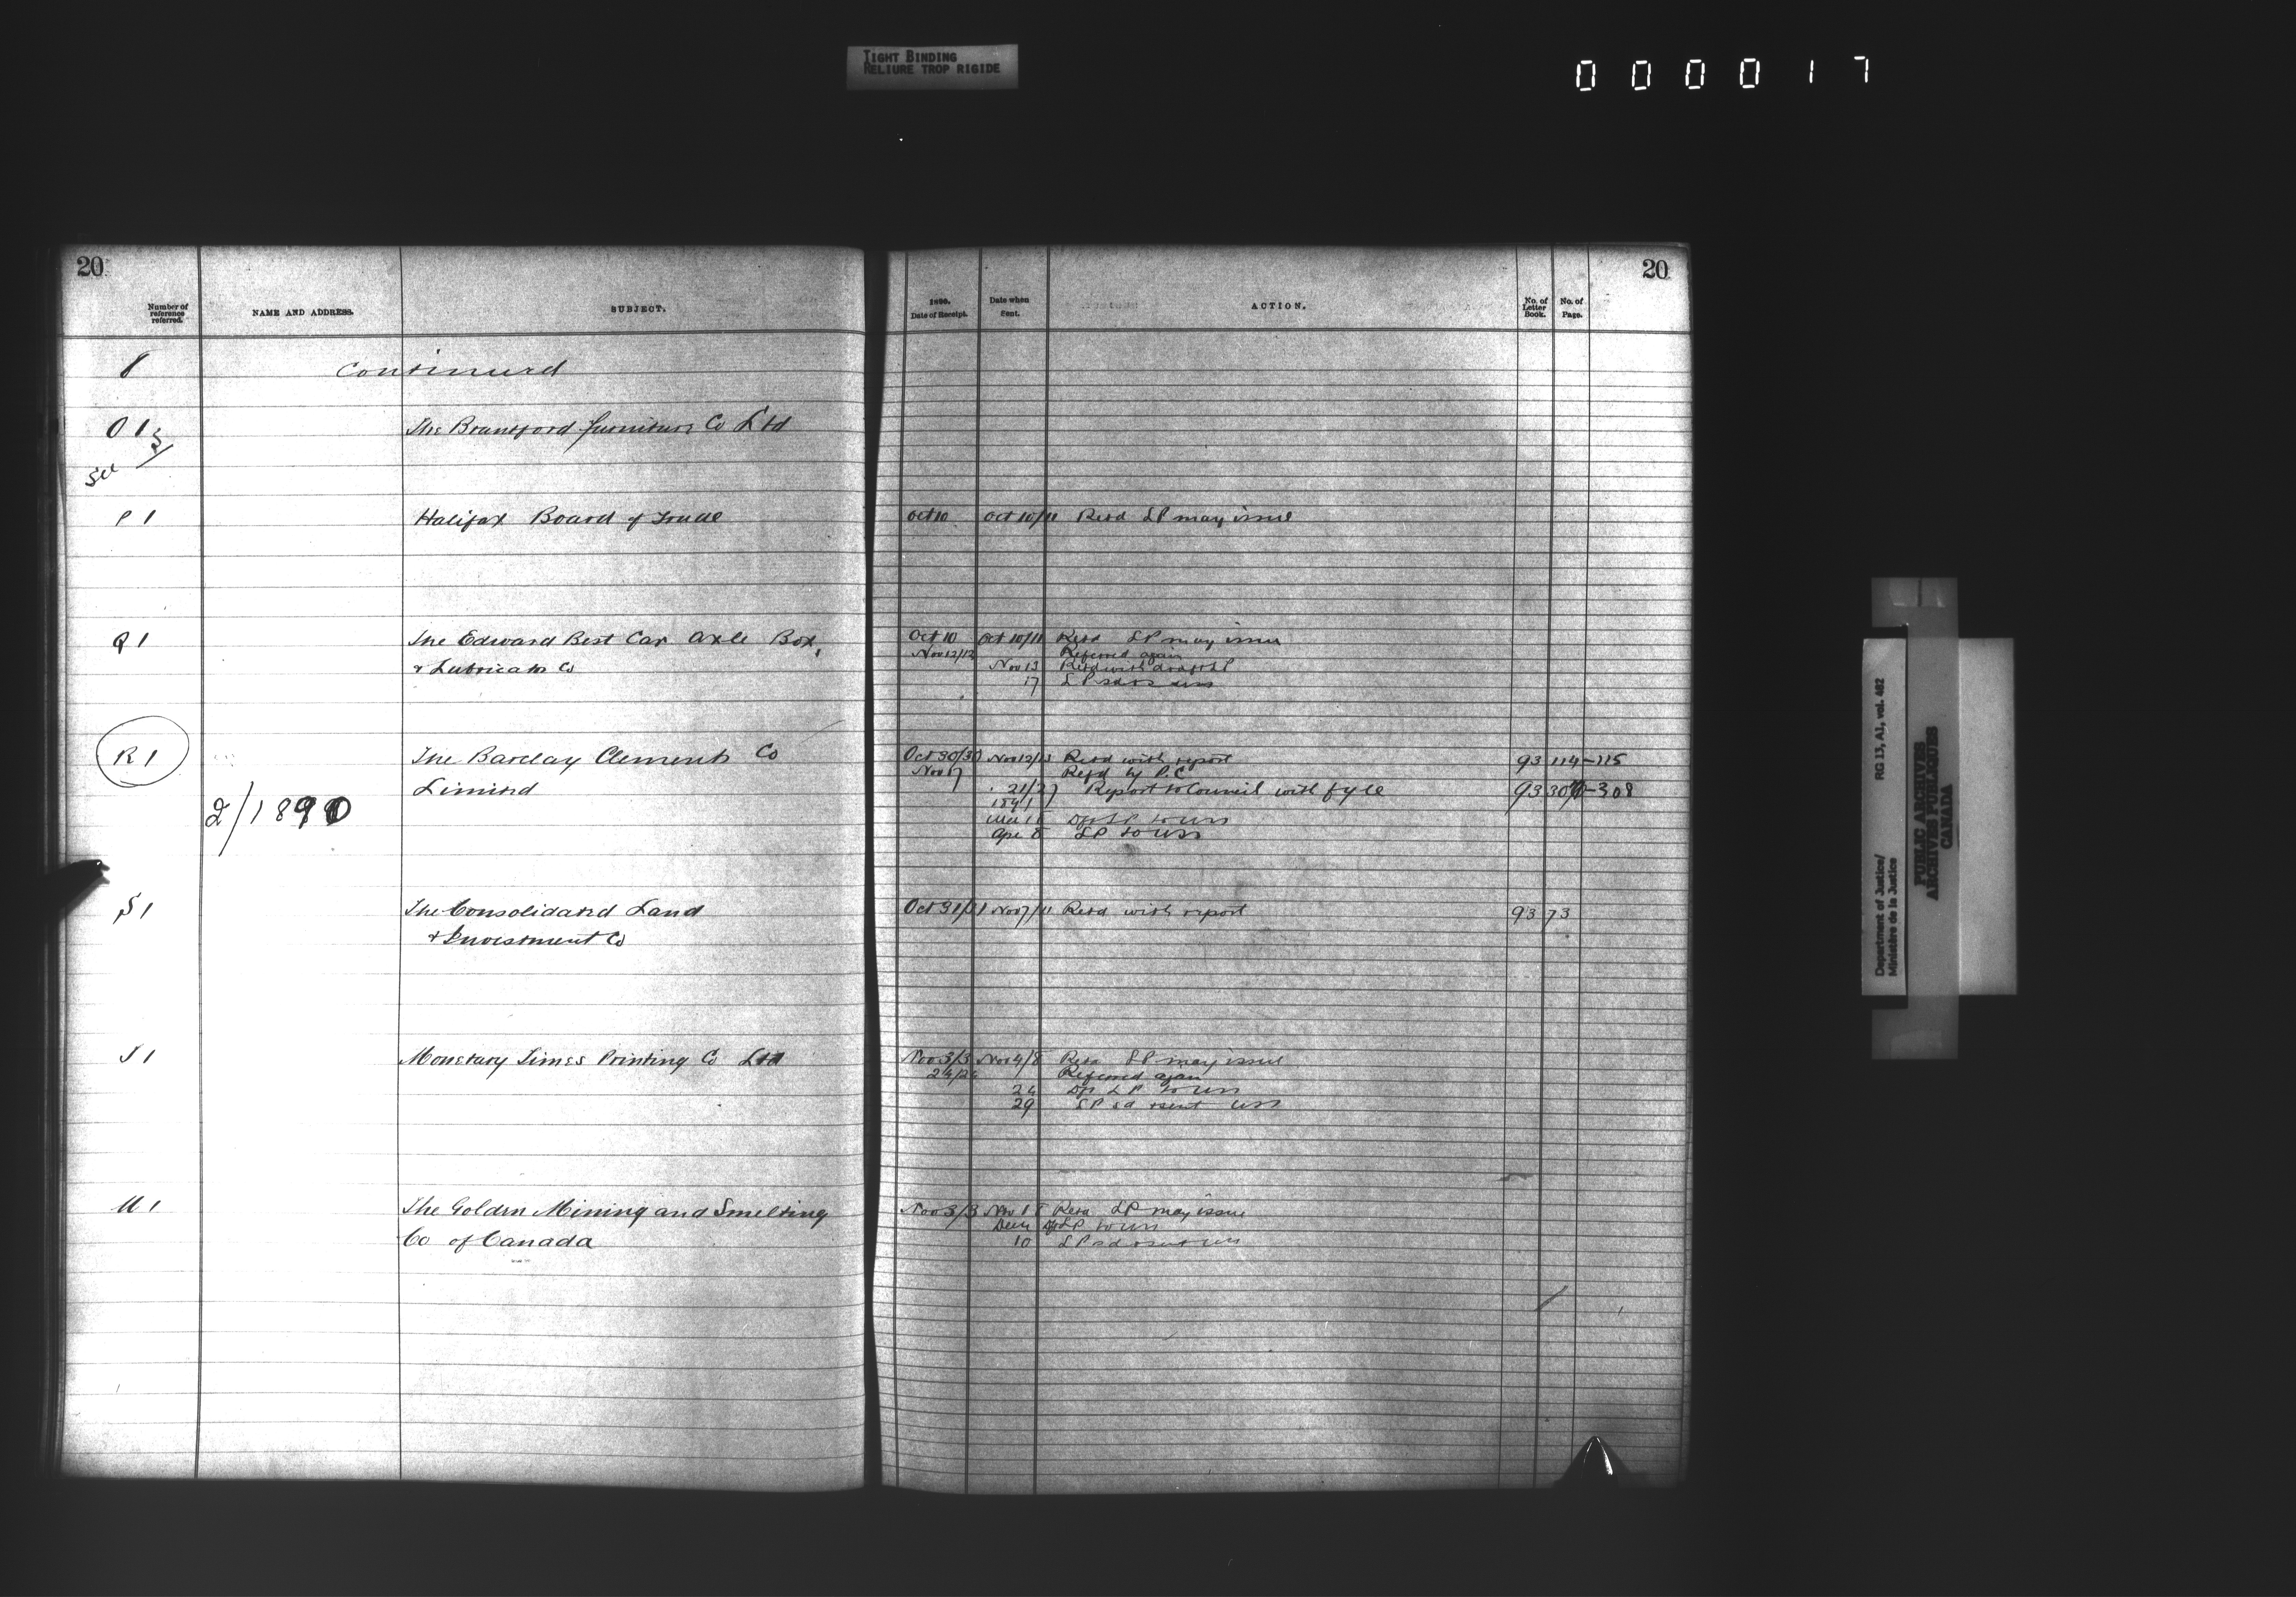 TIGHT BINDING
RELIURE TROP RIGIDE
000017
20
20
Number of reference referred.
NAME AND ADDRESS.
SUBJECT.
1890.
Date of Receipt.
Date when Sent.
ACTION.
No. of Letter Book.
No. of Page.
8 Continued
O 1 The Brantford furniture Co Ltd
P 1 Halifax Board of Trade Oct 10 Oct 10/11 Retd LP may issue
Q 1 The Edward Best Car Axle Box, Oct 10 Oct 10/11 Retd LP may issue
Nov 12/12 Referred again
& Lubricator Co Nov 13 Retd with draft LP
17 LP
R 1 The Barclay Clements Co Oct 30/30 Nov 12/13 Retd with report 93 114-115
Nov 17 Refd by P.C.
Limited 21/27 Report to Council with fyle 93 307-308
2/1890 1891
Dft LP to USS
Apr 8 LP to USS
S 1 The Consolidated Land Oct 31/31 Nov 7/11 Retd with report 93 73
& Investment Co
T 1 Monetary Times Printing Co Ltd Nov 3/3 Nov 4/8 Retd LP may issue
24/24 Referred again
24 Dft LP to USS
29 LP sd & sent USS
U 1 The Golden Mining and Smelting Nov 3/3 Nov 18 Retd LP may issue
Dft LP to USS
Co of Canada 10 LP sd & sent USS
Department of Justice/
Ministère de la Justice
RG 13, A1, vol. 482
PUBLIC ARCHIVES
ARCHIVES PUBLIQUES
CANADA